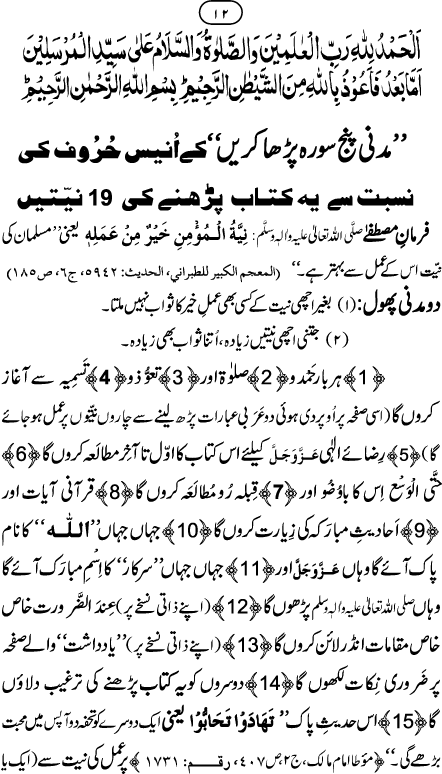 ۱۲
اَلْحَمْدُ لِلّٰهِ رَبِّ الْعٰلَمِيْنَ وَالصَّلٰوةُ وَالسَّلَامُ عَلٰى سَيِّدِ الْمُرْسَلِيْنَ
اَمَّا بَعْدُ فَاَعُوْذُ بِاللّٰهِ مِنَ الشَّيْطٰنِ الرَّجِيْمِ ؕ بِسْمِ اللّٰهِ الرَّحْمٰنِ الرَّحِيْمِ ؕ
”مدنی پنج سورہ پڑھا کریں“ کے اُنیس حُرُوف کی
نسبت سے یہ کتاب پڑھنے کی 19 نیّتیں
فرمانِ مصطفٰے صلَّی اللہ تعالیٰ علیہ واٰلہٖ وسلَّم: نِيَّةُ الْمُؤْمِنِ خَيْرٌ مِنْ عَمَلِهٖ یعنی ”مسلمان کی
نیّت اس کے عمل سے بہتر ہے۔“ (المعجم الکبیر للطبرانی، الحدیث: ۵۹۴۲، ج۶، ص۱۸۵)
دو مدنی پھول: (۱) بغیر اچھی نیت کے کسی بھی عملِ خیر کا ثواب نہیں ملتا۔
(۲) جتنی اچھی نیتیں زیادہ، اُتنا ثواب بھی زیادہ۔
﴿1﴾ ہر بار حَمد و ﴿2﴾ صلوٰۃ اور ﴿3﴾ تعوُّذ و ﴿4﴾ تَسمِیہ سے آغاز
کروں گا (اسی صفحہ پر اُوپر دی ہوئی دو عَرَبی عبارات پڑھ لینے سے چاروں نیّتوں پر عمل ہو جائے
گا) ﴿5﴾ رِضائے الٰہی عَزَّوَجَلَّ کیلئے اس کتاب کا اوّل تا آخِر مطالَعہ کروں گا ﴿6﴾
حتَّی الْوَسْع اِس کا باوُضُو اور ﴿7﴾ قِبلہ رُو مُطالَعہ کروں گا ﴿8﴾ قرآنی آیات اور
﴿9﴾ اَحادیثِ مبارَکہ کی زِیارت کروں گا ﴿10﴾ جہاں جہاں ”اللّٰہ“ کا نام
پاک آئے گا وہاں عَزَّوَجَلَّ اور ﴿11﴾ جہاں جہاں ”سرکار“ کا اِسْمِ مبارَک آئے گا
وہاں صلَّی اللہ تعالیٰ علیہ واٰلہٖ وسلَّم پڑھوں گا ﴿12﴾ (اپنے ذاتی نسخے پر) عِندَ الضَّرورت خاص
خاص مقامات انڈر لائن کروں گا ﴿13﴾ (اپنے ذاتی نسخے پر) ”یادداشت“ والے صفحہ
پر ضَروری نِکات لکھوں گا ﴿14﴾ دوسروں کو یہ کتاب پڑھنے کی ترغیب دلاؤں
گا ﴿15﴾ اس حدیثِ پاک ”تَهَادَوْا تَحَابُّوْا یعنی ایک دوسرے کو تحفہ دو آپس میں محبت
بڑھے گی۔“ ﴿مؤطا امام مالک، ج۲، ص۴۰۷، رقم: ۱۷۳۱﴾ پر عمل کی نیت سے (ایک یا